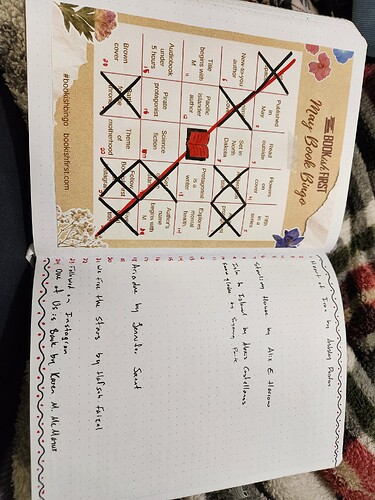 BOOKISHFIRST
May Book Bingo
Published in May
Read outside
Flowers on cover
Fifth in a series
New-to-you author
Set in North Dakota
Title begins with M
Pacific Islander author
Protagonist is a writer
Explores mental health
Audiobook under 5 hours
Pirate protagonist
Science fiction
Author's name begins with M
Brown cover
Theme of motherhood
#bookishbingo bookishfirst.com
Heart of Iron by Ashley Poston
Starling House by Alix E. Harrow
by
by Park
Ariadne by Jennifer Saint
We Free the Stars by Hafsah Faizal
Followed on Instagram
One of Us is Back by Karen M. McManus